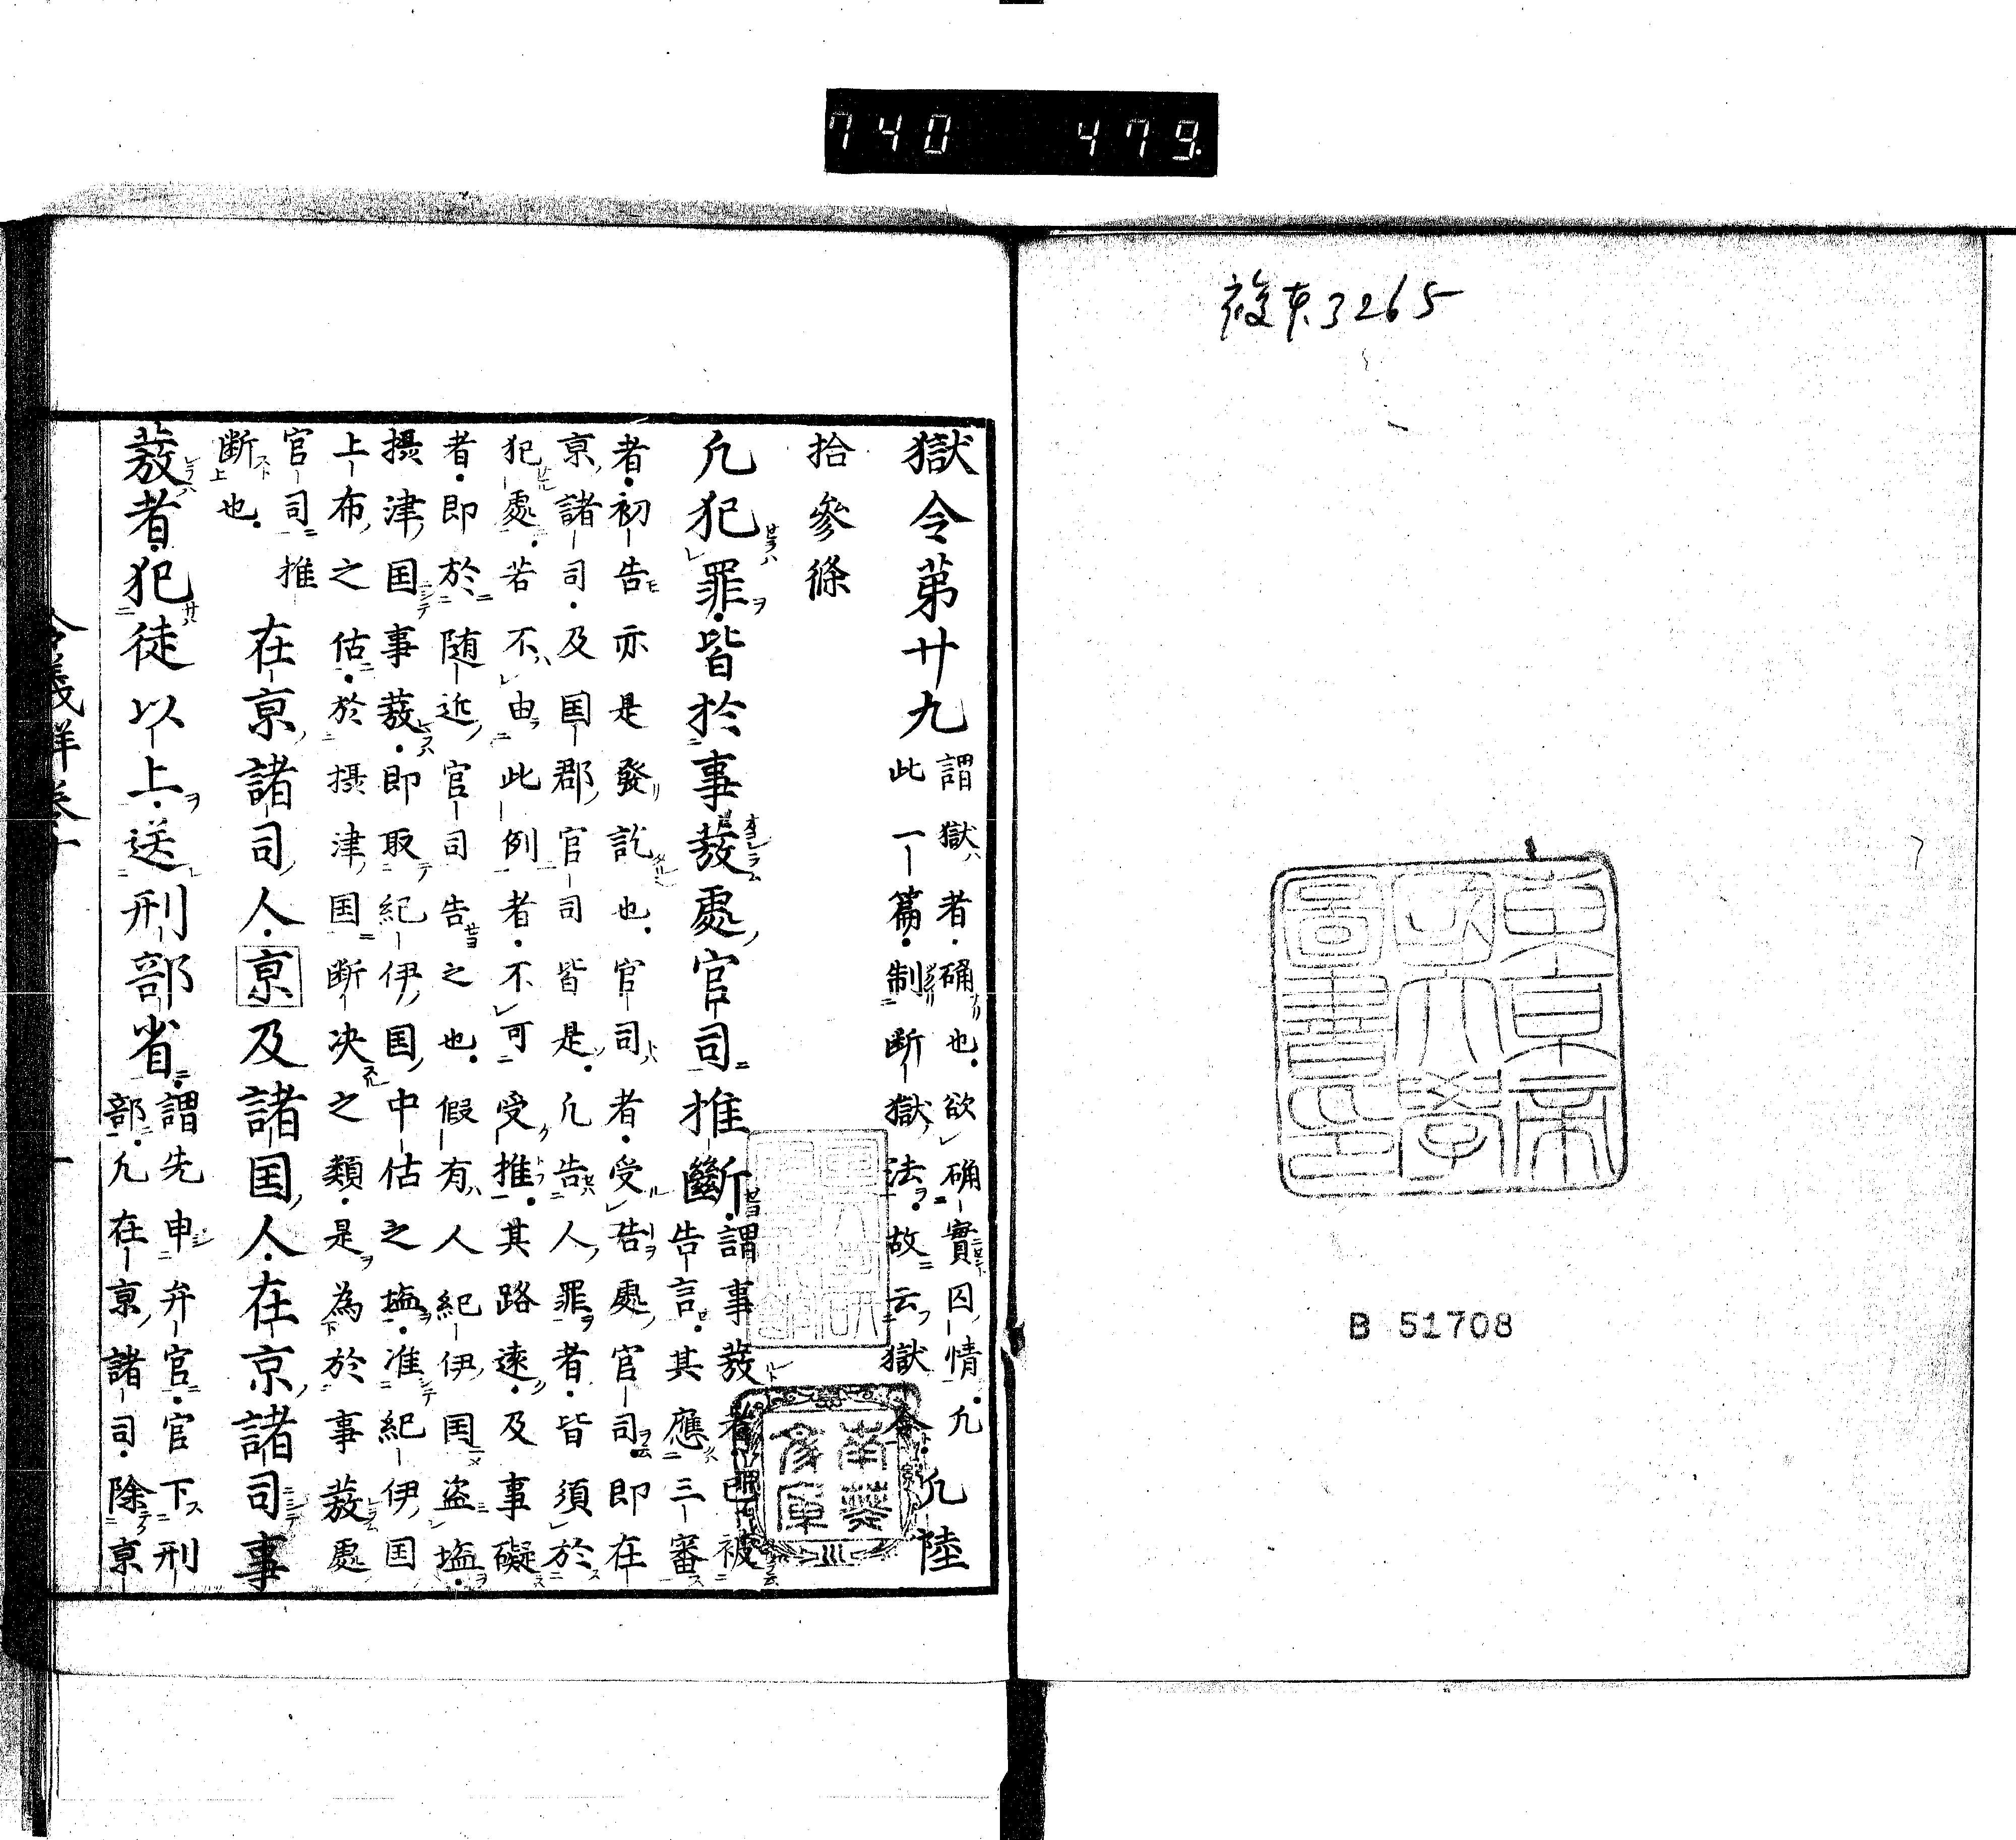 740 479
複東3265
東京帝
國大學
圖書印
B 51708
獄令第廿九 謂獄者確也欲確實囚情凡
此一篇制断獄法故云獄令 凡陸
拾參條
凢犯罪皆於事𤼲處官司推斷 謂事𤼲者已被
告言其應三審
者初告亦是發訖也官司者受告處官司即在
京諸司及国郡官司皆是凢告人罪者皆須於
犯處若不由此例者不可受推其路遠及事礙
者即於随近官司告之也假有人紀伊国盗塩
摂津国事𤼲即取紀伊国中估之塩准紀伊国
上布之估於摂津国断决之類是為於事𤼲處
官司推
断也
在京諸司人京及諸国人在京諸司事
𤼲者犯徒以上送刑部省 謂先申弁官官下刑
部凢在京諸司除京
令義解卷十 一
南葵
文庫